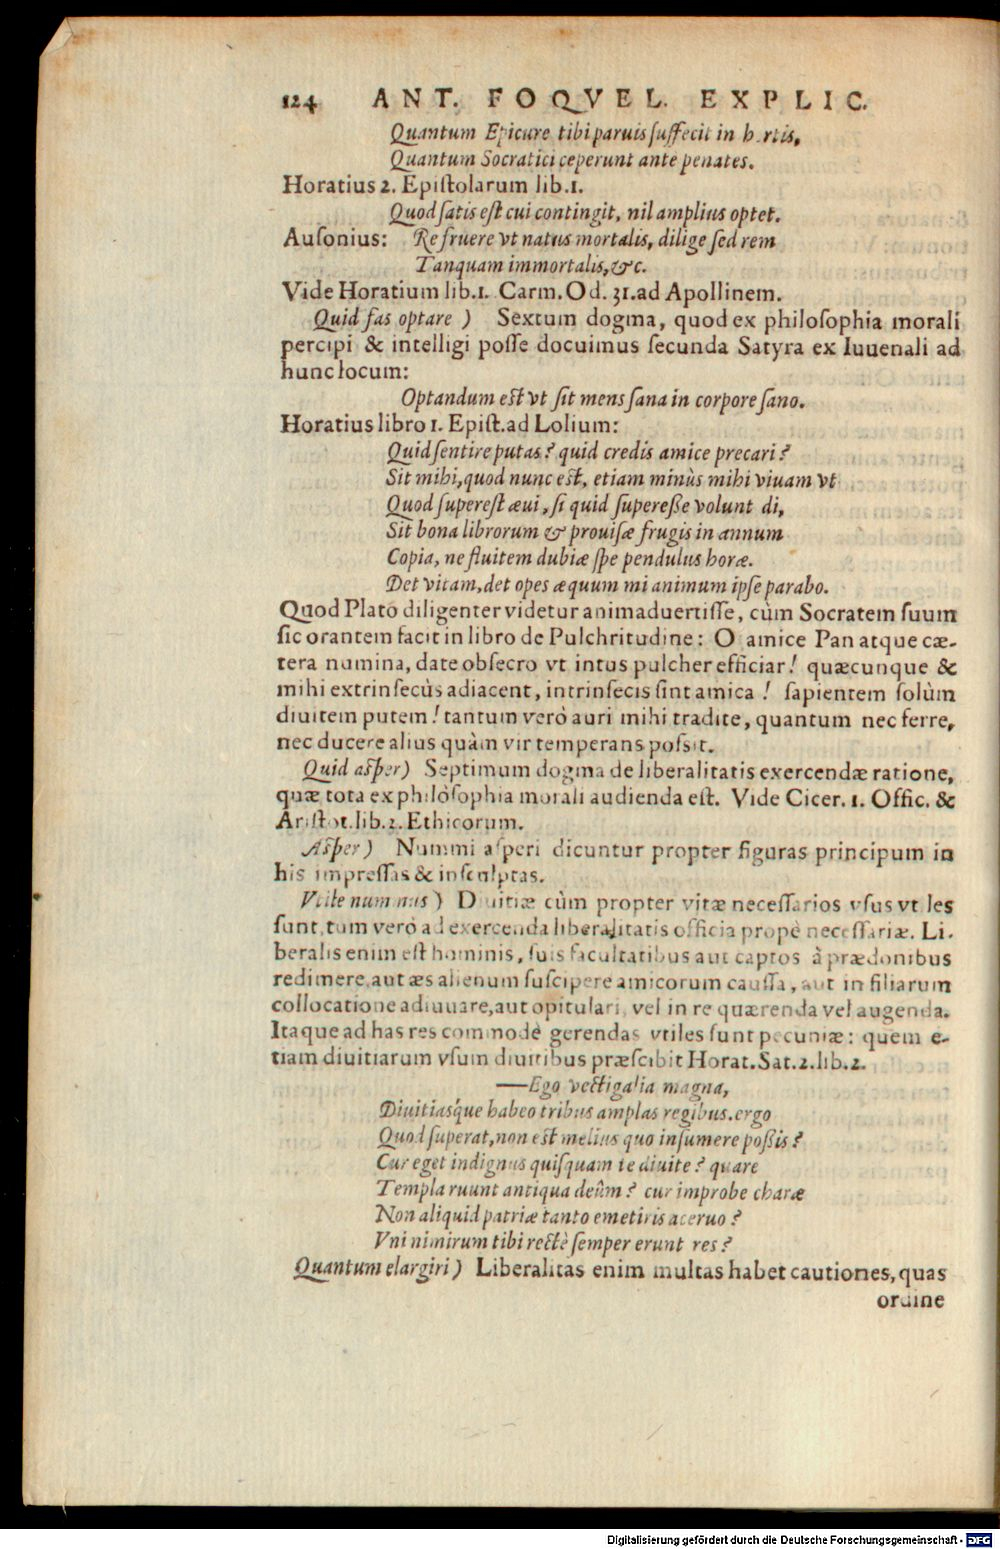 124 ANT. FOQVEL. EXPLIC.
Quantum Epicure tibi paruis ſuffecit in hortis,
Quantum Socratici ceperunt ante penates.
Horatius 2. Epiſtolarum lib.1.
Quod ſatis eſt cui contingit, nil amplius optet.
Auſonius: Re fruere vt natus mortalis, dilige ſed rem
Tanquam immortalis, &c.
Vide Horatium lib.1. Carm. Od. 31. ad Apollinem.
Quid fas optare ) Sextum dogma, quod ex philoſophia morali
percipi & intelligi poſſe docuimus ſecunda Satyra ex Iuuenali ad
hunc locum:
Optandum eſt vt ſit mens ſana in corpore ſano.
Horatius libro 1. Epiſt. ad Lolium:
Quid ſentire putas? quid credis amice precari?
Sit mihi, quod nunc eſt, etiam minùs mihi viuam vt
Quod ſupereſt æui, ſi quid ſupereſſe volunt di,
Sit bona librorum & prouiſæ frugis in annum
Copia, ne fluitem dubiæ ſpe pendulus horæ.
Det vitam, det opes æquum mi animum ipſe parabo.
Quod Plato diligenter videtur animaduertiſſe, cùm Socratem ſuum
ſic orantem facit in libro de Pulchritudine: O amice Pan atque cæ-
tera numina, date obſecro vt intus pulcher efficiar! quæcunque &
mihi extrinſecùs adiacent, intrinſecis ſint amica! ſapientem ſolùm
diuitem putem! tantum verò auri mihi tradite, quantum nec ferre,
nec ducere alius quàm vir temperans poſsit.
Quid aſper) Septimum dogma de liberalitatis exercendæ ratione,
quæ tota ex philòſophia morali audienda eſt. Vide Cicer. 1. Offic. &
Ariſtot. lib.2. Ethicorum.
Aſper) Nummi aſperi dicuntur propter figuras principum in
his impreſſas & inſculptas.
Vtile nummus) Diuitiæ cùm propter vitæ neceſſarios vſus vtiles
ſunt, tum verò ad exercenda liberalitatis officia propè neceſſariæ. Li-
beralis enim eſt hominis, ſuis facultatibus aut captos à prædonibus
redimere, aut æs alienum ſuſcipere amicorum cauſſa, aut in filiarum
collocatione adiuuare, aut opitulari, vel in re quærenda vel augenda.
Itaque ad has res commodè gerendas vtiles ſunt pecuniæ: quem e-
tiam diuitiarum vſum diuitibus præſcibit Horat. Sat.2. lib.2.
—Ego vectigalia magna,
Diuitiasq́ue habeo tribus amplas regibus. ergo
Quod ſuperat, non eſt melius quo inſumere poſsis?
Cur eget indignus quiſquam te diuite? quare
Templa ruunt antiqua deûm? cur improbe charæ
Non aliquid patriæ tanto emetiris aceruo?
Vni nimirum tibi rectè ſemper erunt res?
Quantum elargiri) Liberalitas enim multas habet cautiones, quas
ordine
Digitalisierung gefördert durch die Deutsche Forschungsgemeinschaft - DFG